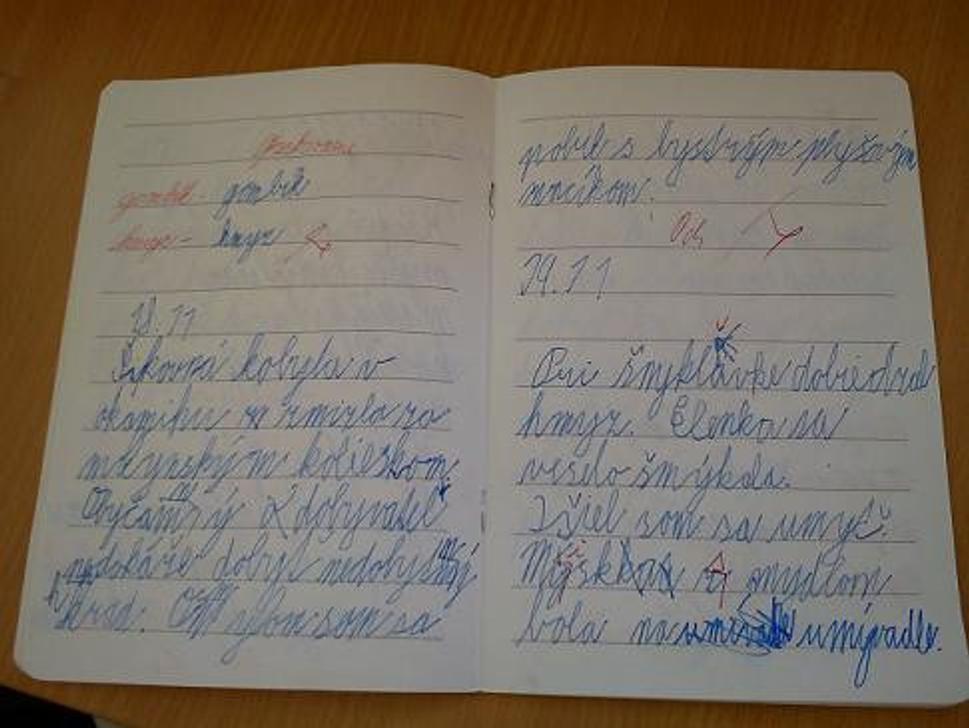 gombík - gombík
hmyz - hmyz
18.11
Šikovná kobyla v
okamihu zmizla za
mlynským kolieskom.
Obyčajný dobyvateľ
nedokáže dobyť nedobytný
hrad. Omylom som sa
pobil s bystrým plyšovým
macíkom.
19.11
Pri šmykľavke dobiedzal
hmyz. Elenka sa
veselo šmýkala.
Išiel som sa umyť.
Miska mydlom
bola na umývadle.